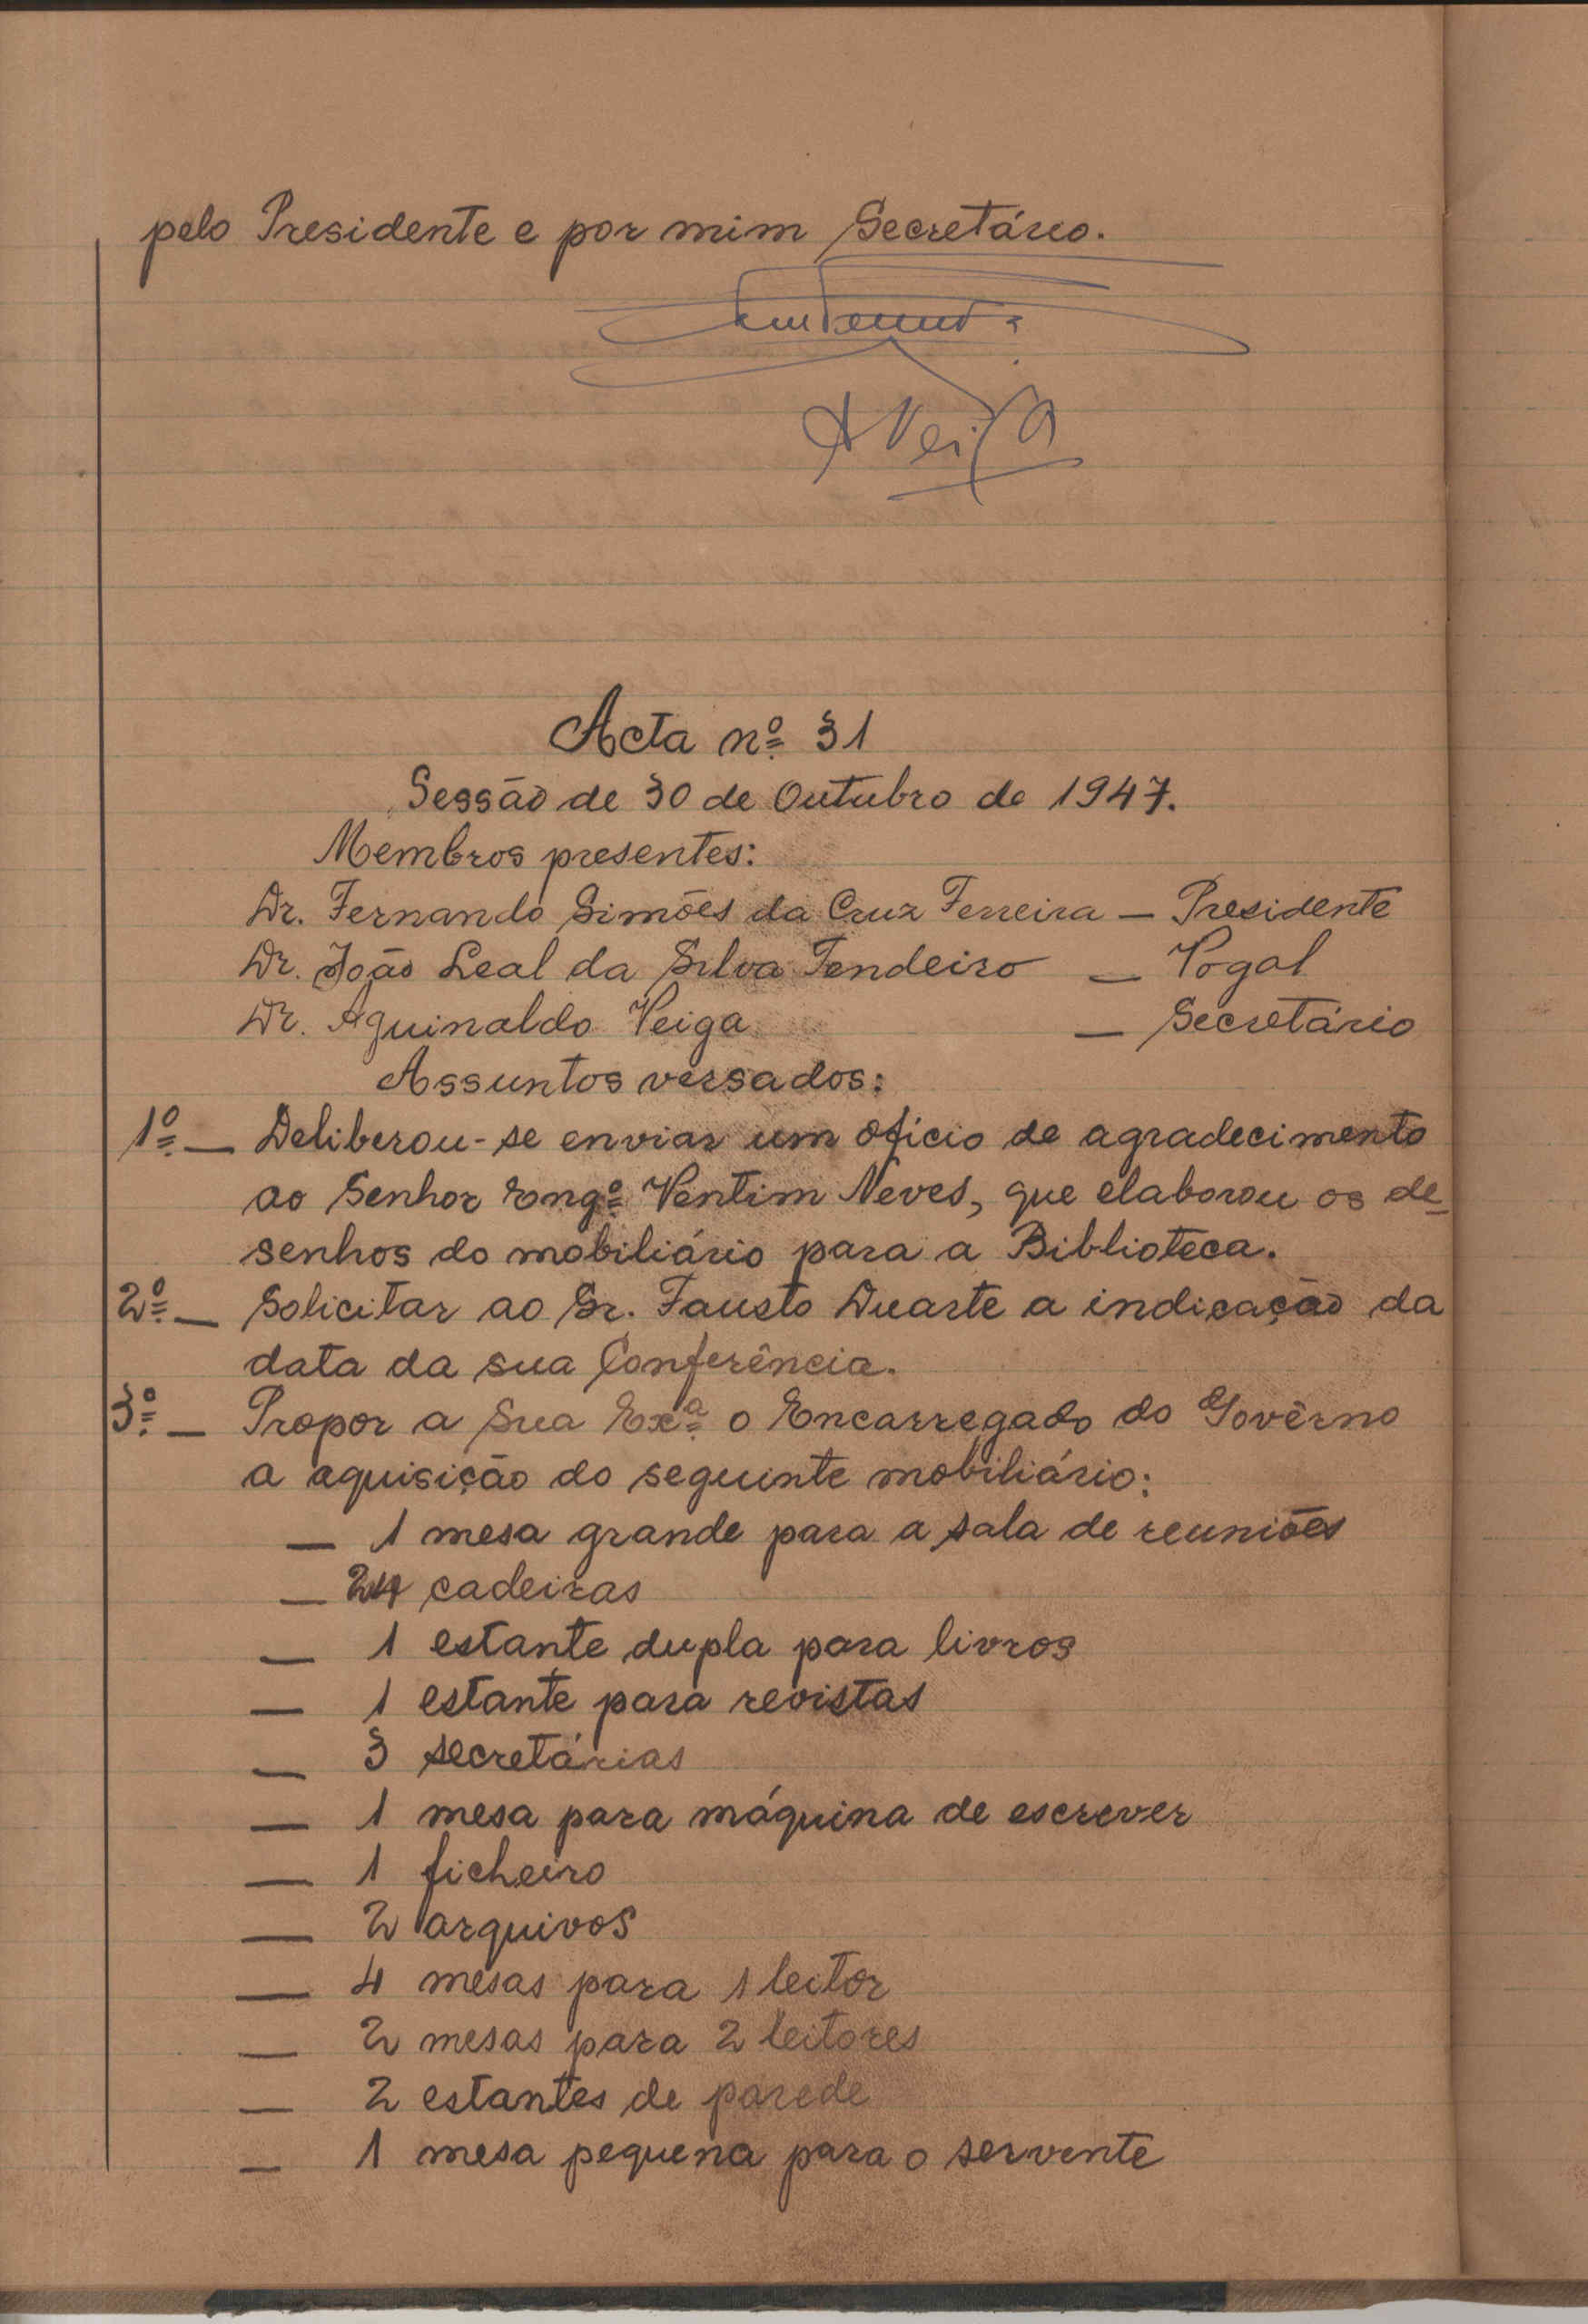 pelo Presidente e por mim Secretário.
AVeiga
Acta nº 31
Sessão de 30 de Outubro de 1947.
Membros presentes:
Dr. Fernando Simões da Cruz Ferreira — Presidente
Dr. João Leal da Silva Tendeiro — Vogal
Dr. Aguinaldo Veiga — Secretário
Assuntos versados:
1º — Deliberou-se enviar um ofício de agradecimento
ao Senhor Engº Ventim Neves, que elaborou os de-
senhos do mobiliário para a Biblioteca.
2º — Solicitar ao Sr. Fausto Duarte a indicação da
data da sua Conferência.
3º — Propor a Sua Exª o Encarregado do Govêrno
a aquisição do seguinte mobiliário:
— 1 mesa grande para a sala de reuniões
— 24 cadeiras
— 1 estante dupla para livros
— 1 estante para revistas
— 3 secretárias
— 1 mesa para máquina de escrever
— 1 ficheiro
— 2 arquivos
— 4 mesas para 1 leitor
— 2 mesas para 2 leitores
— 2 estantes de parede
— 1 mesa pequena para o servente